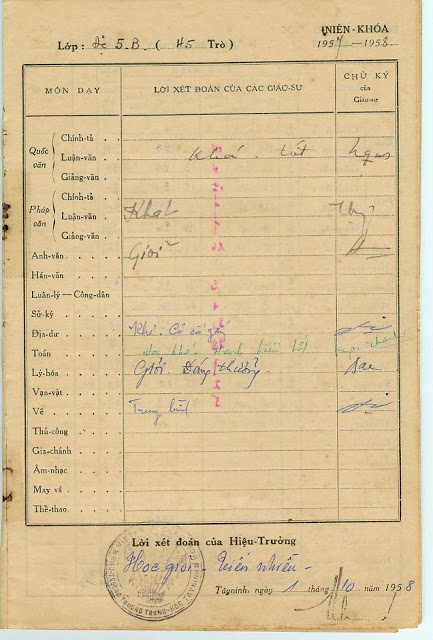 NIÊN-KHÓA
Lớp : Đệ 5.B. ( 45 Trò )
1957 — 1958
MÔN DẠY
LỜI XÉT ĐOÁN CỦA CÁC GIÁO-SƯ
CHỮ KÝ
của
Giáo-sư
Quốc văn
Chính-tả
Luận-văn Khá. tốt
Giảng-văn
Pháp văn
Chính-tả
Luận-văn Khá
Giảng-văn
Anh-văn Giỏi
Hán-văn
Luân-lý — Công-dân
Sử-ký
Địa-dư Khá. Có cố gắng
Toán Học khá
Lý-hóa Giỏi. Đáng thưởng.
Vạn-vật
Vẽ Trung bình
Thủ-công
Gia-chánh
Âm-nhạc
May vá
Thể-thao
Lời xét đoán của Hiệu-Trưởng
Học giỏi. Tiến nhiều -
Tâyninh, ngày 1 tháng 10 năm 1958